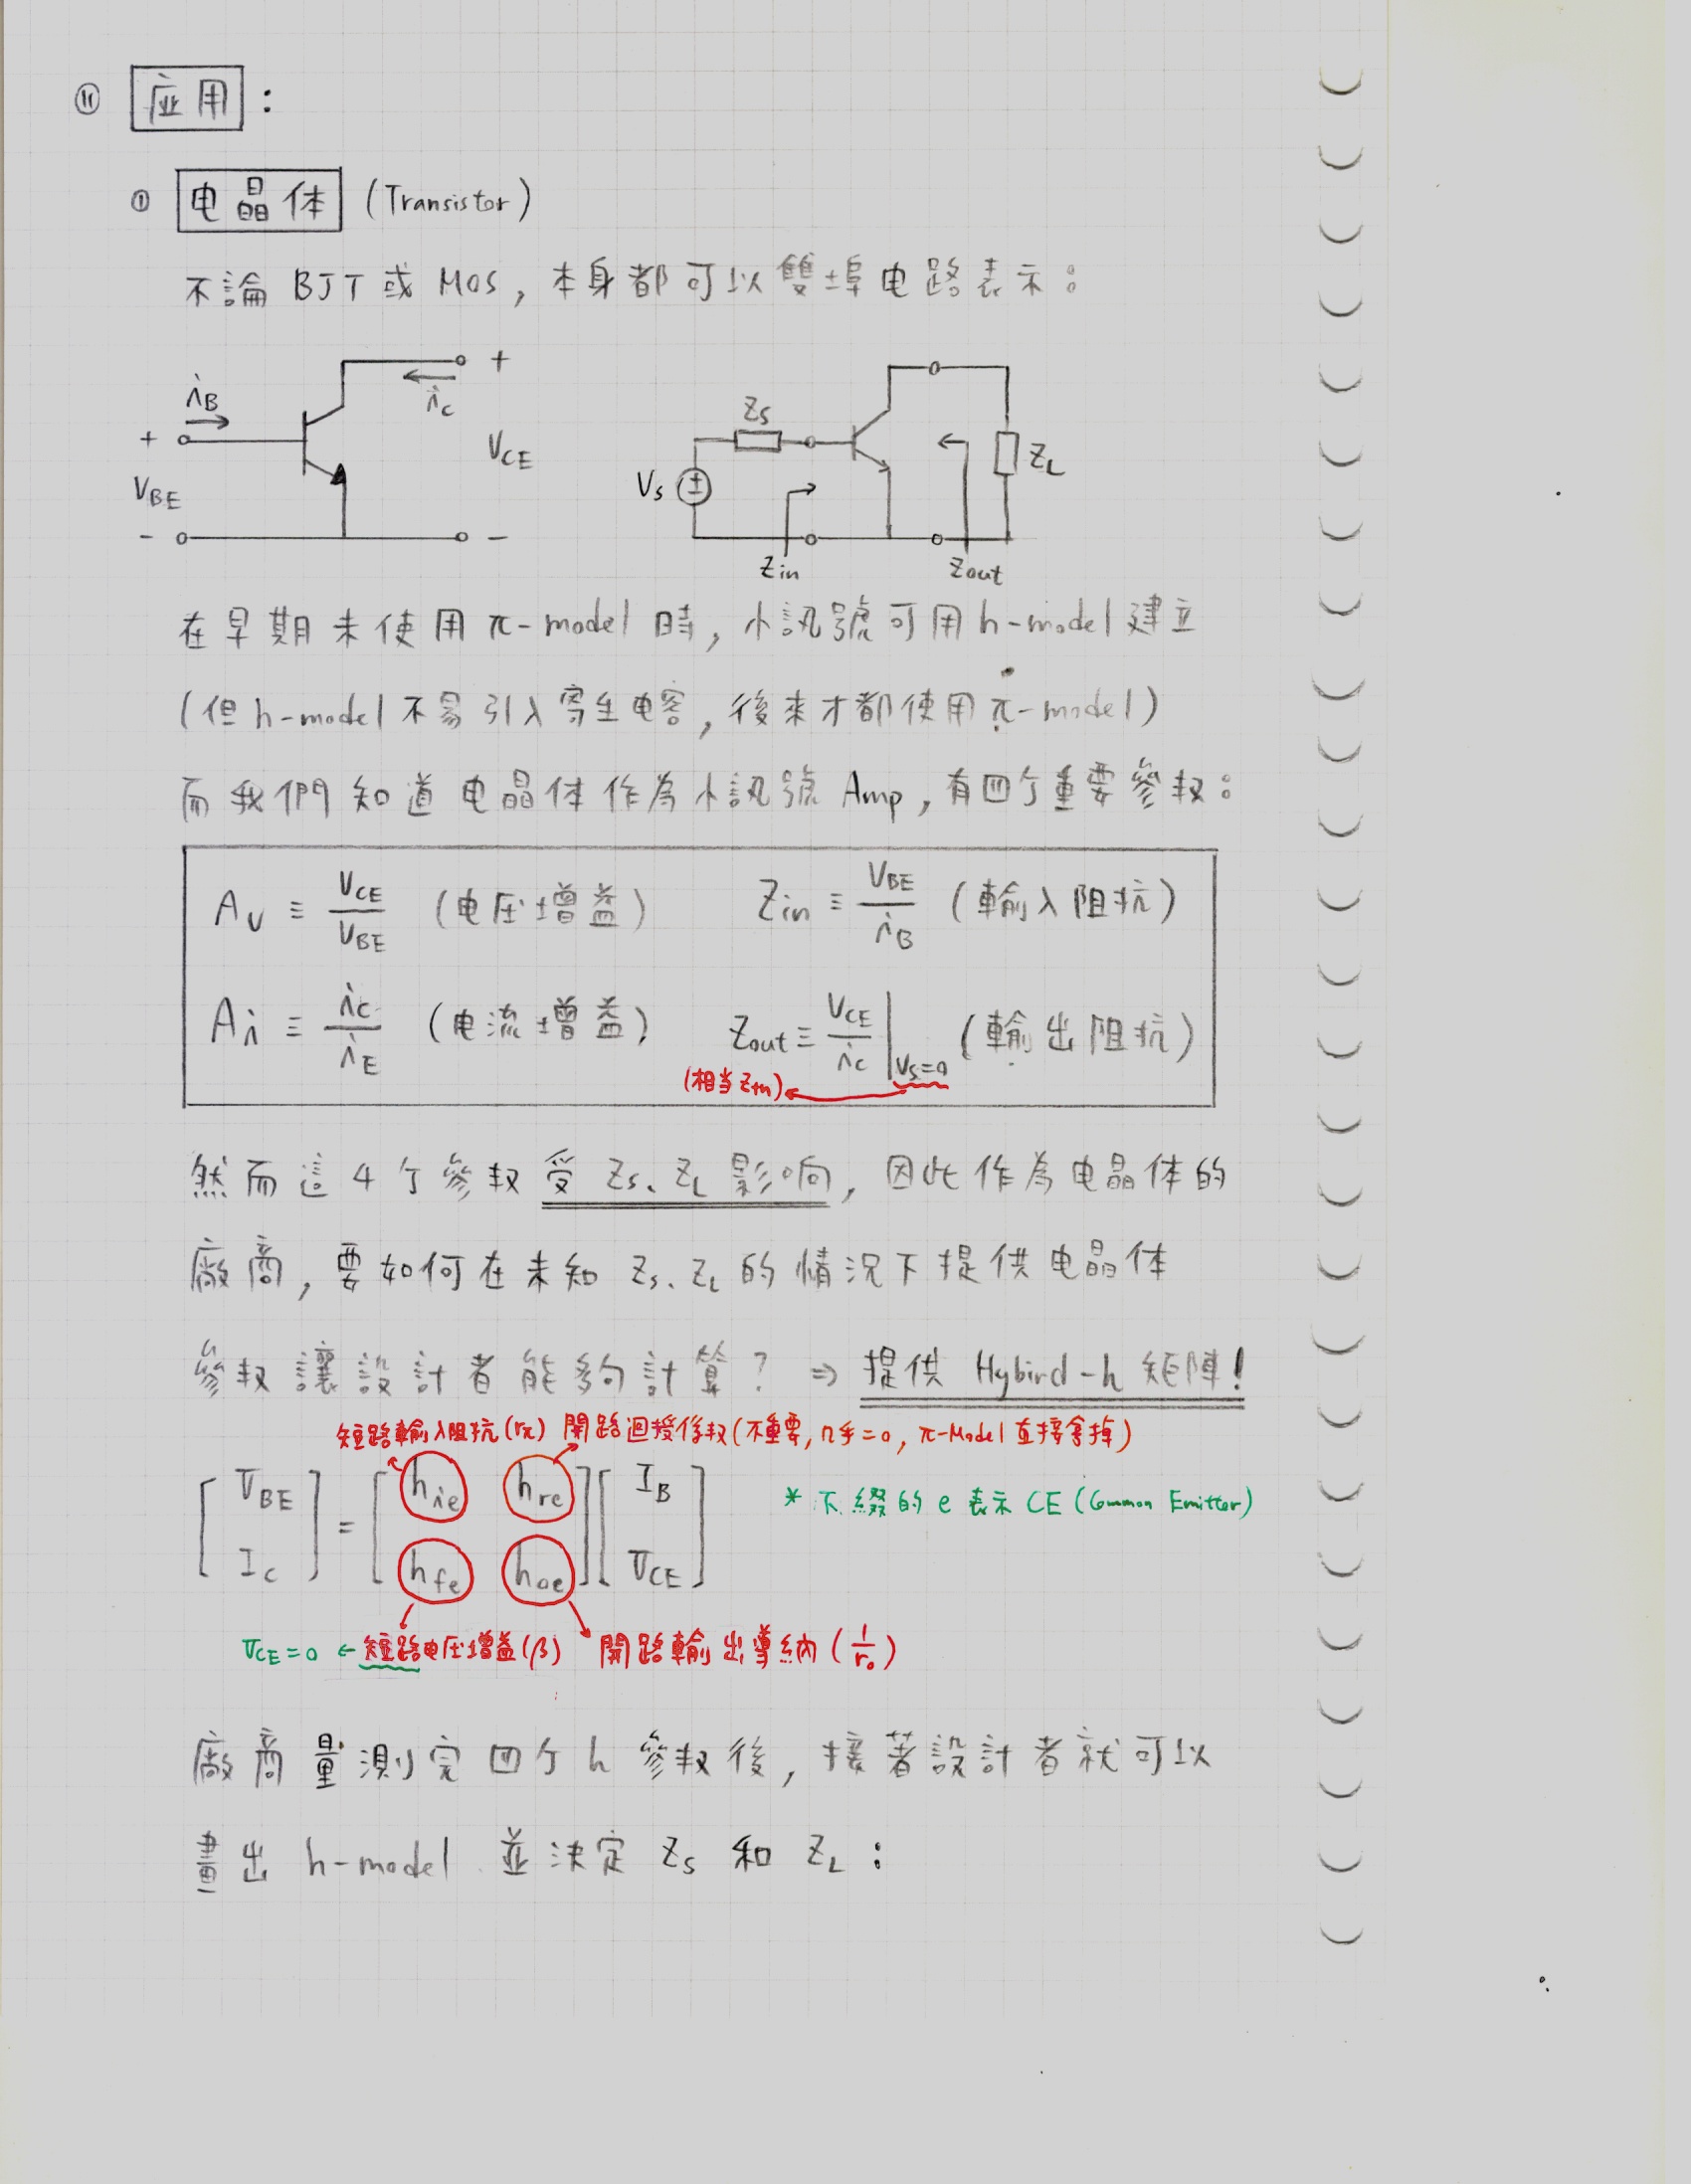 ⑪ 应用:
① 电晶体 (Transistor)
不論 BJT 或 MOS, 本身都可以雙埠电路表示:
iB
+
VBE
-
+
iC
VCE
-
Vs
Zs
Zin
Zout
ZL
在早期未使用 π-model 時, 小訊號可用 h-model 建立
(但 h-model 不易引入寄生电容, 後來才都使用 π-model)
而我們知道电晶体作為小訊號 Amp, 有四个重要參数:
Av ≡ VCE/VBE (电压增益) Zin ≡ VBE/iB (輸入阻抗)
Ai ≡ iC/iE (电流增益) Zout ≡ VCE/iC |Vs=0 (輸出阻抗)
(相当 Zth)
然而這 4 个參数受 Zs、ZL 影响, 因此作為电晶体的
廠商, 要如何在未知 Zs、ZL 的情況下提供电晶体
參数讓設計者能夠計算? ⇒ 提供 Hybird-h 矩陣!
短路輸入阻抗(rπ) 開路迴授係数(不重要, 几乎=0, π-Model 直接拿掉)
[VBE IC] = [hie hre hfe hoe] [IB VCE]
* 下綴的 e 表示 CE (Common Emitter)
VCE=0 ← 短路电压增益(β) 開路輸出導納 (1/ro)
廠商量測完四个 h 參数後, 接著設計者就可以
畫出 h-model 並決定 Zs 和 ZL: